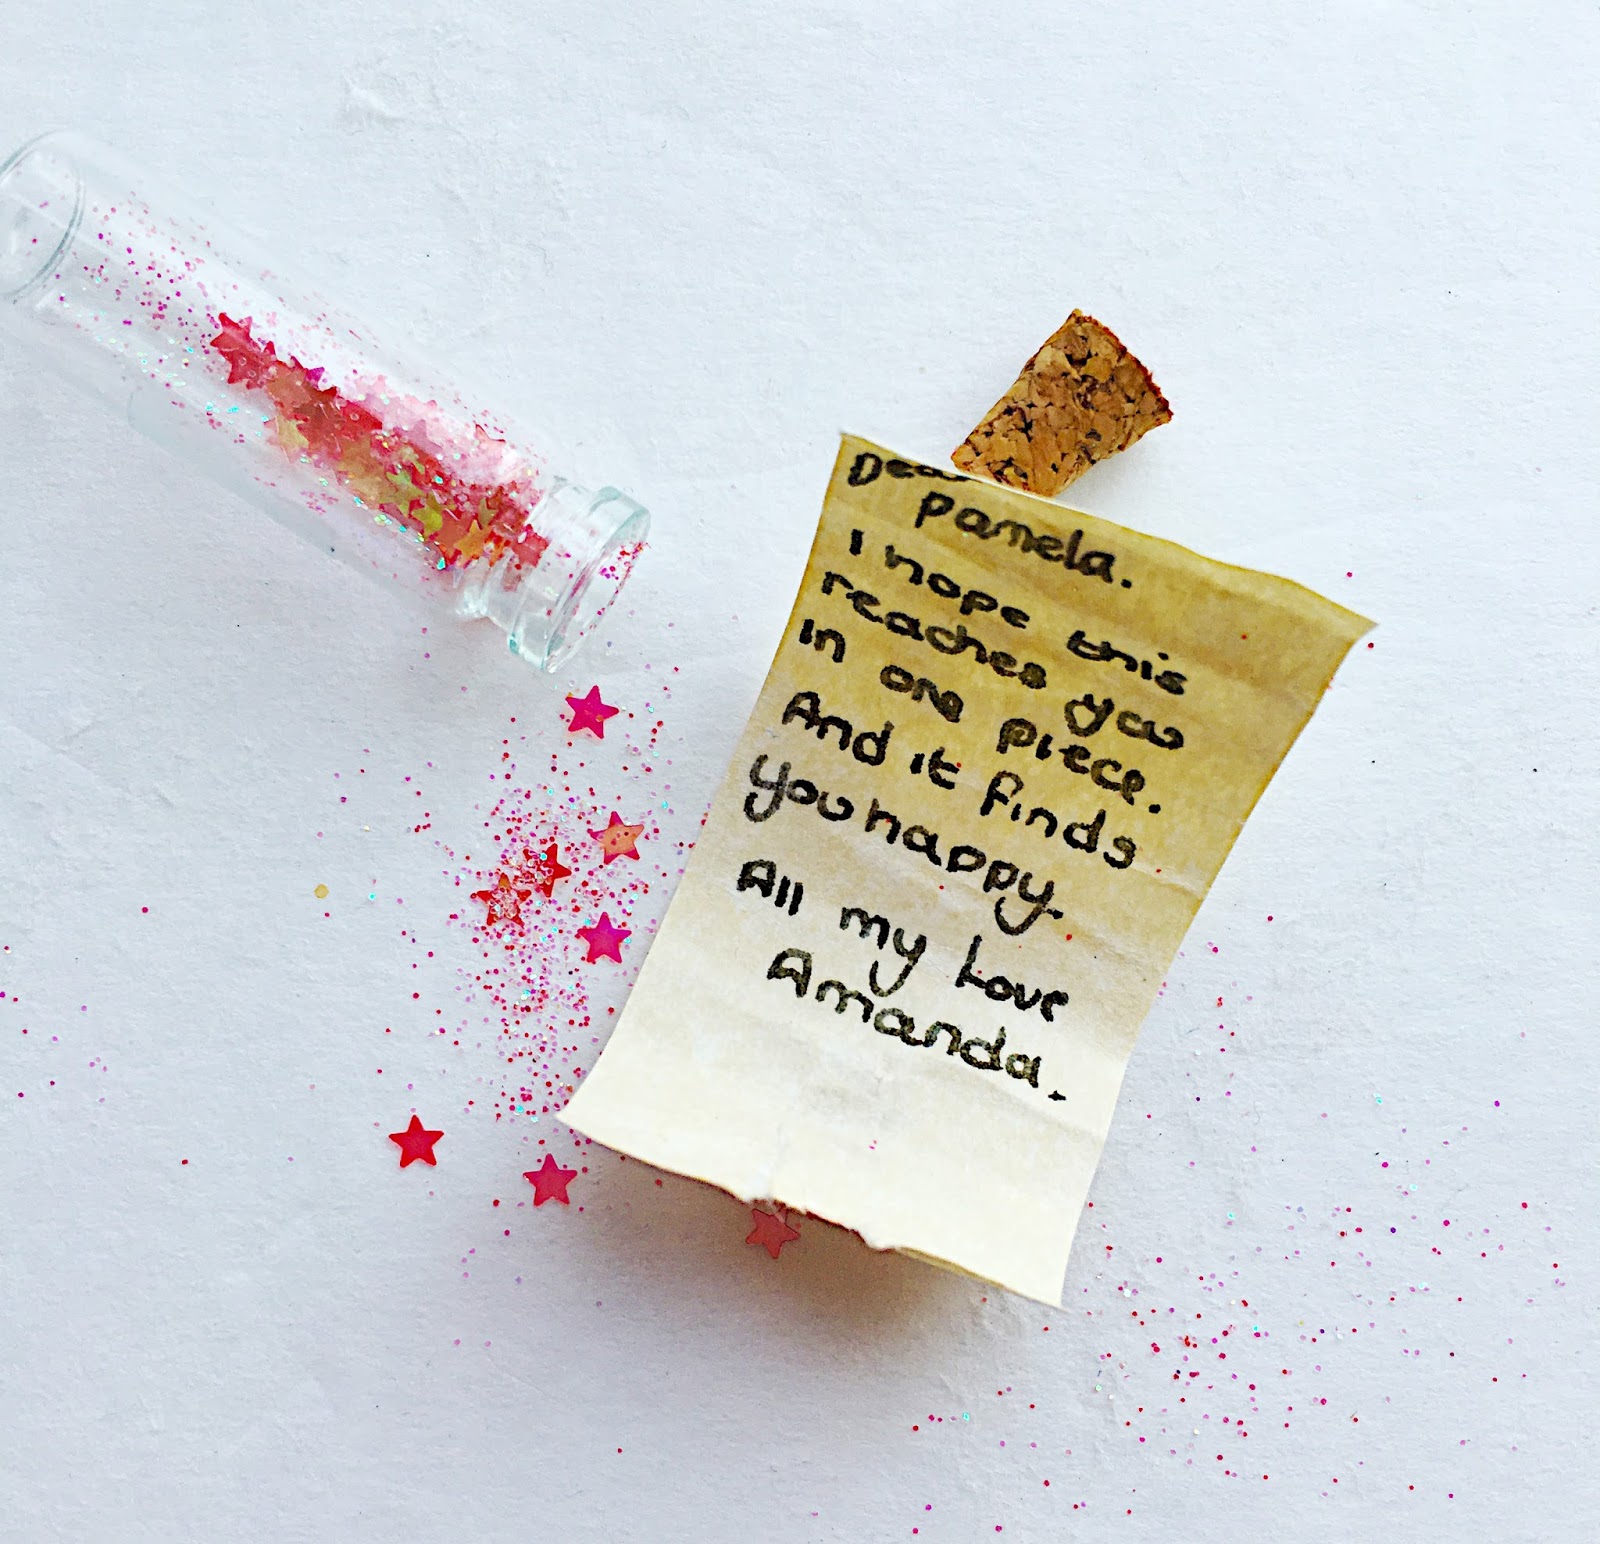 Dear
Pamela.
I hope this
reaches you
in one piece.
And it finds
you happy.
All my Love
Amanda.